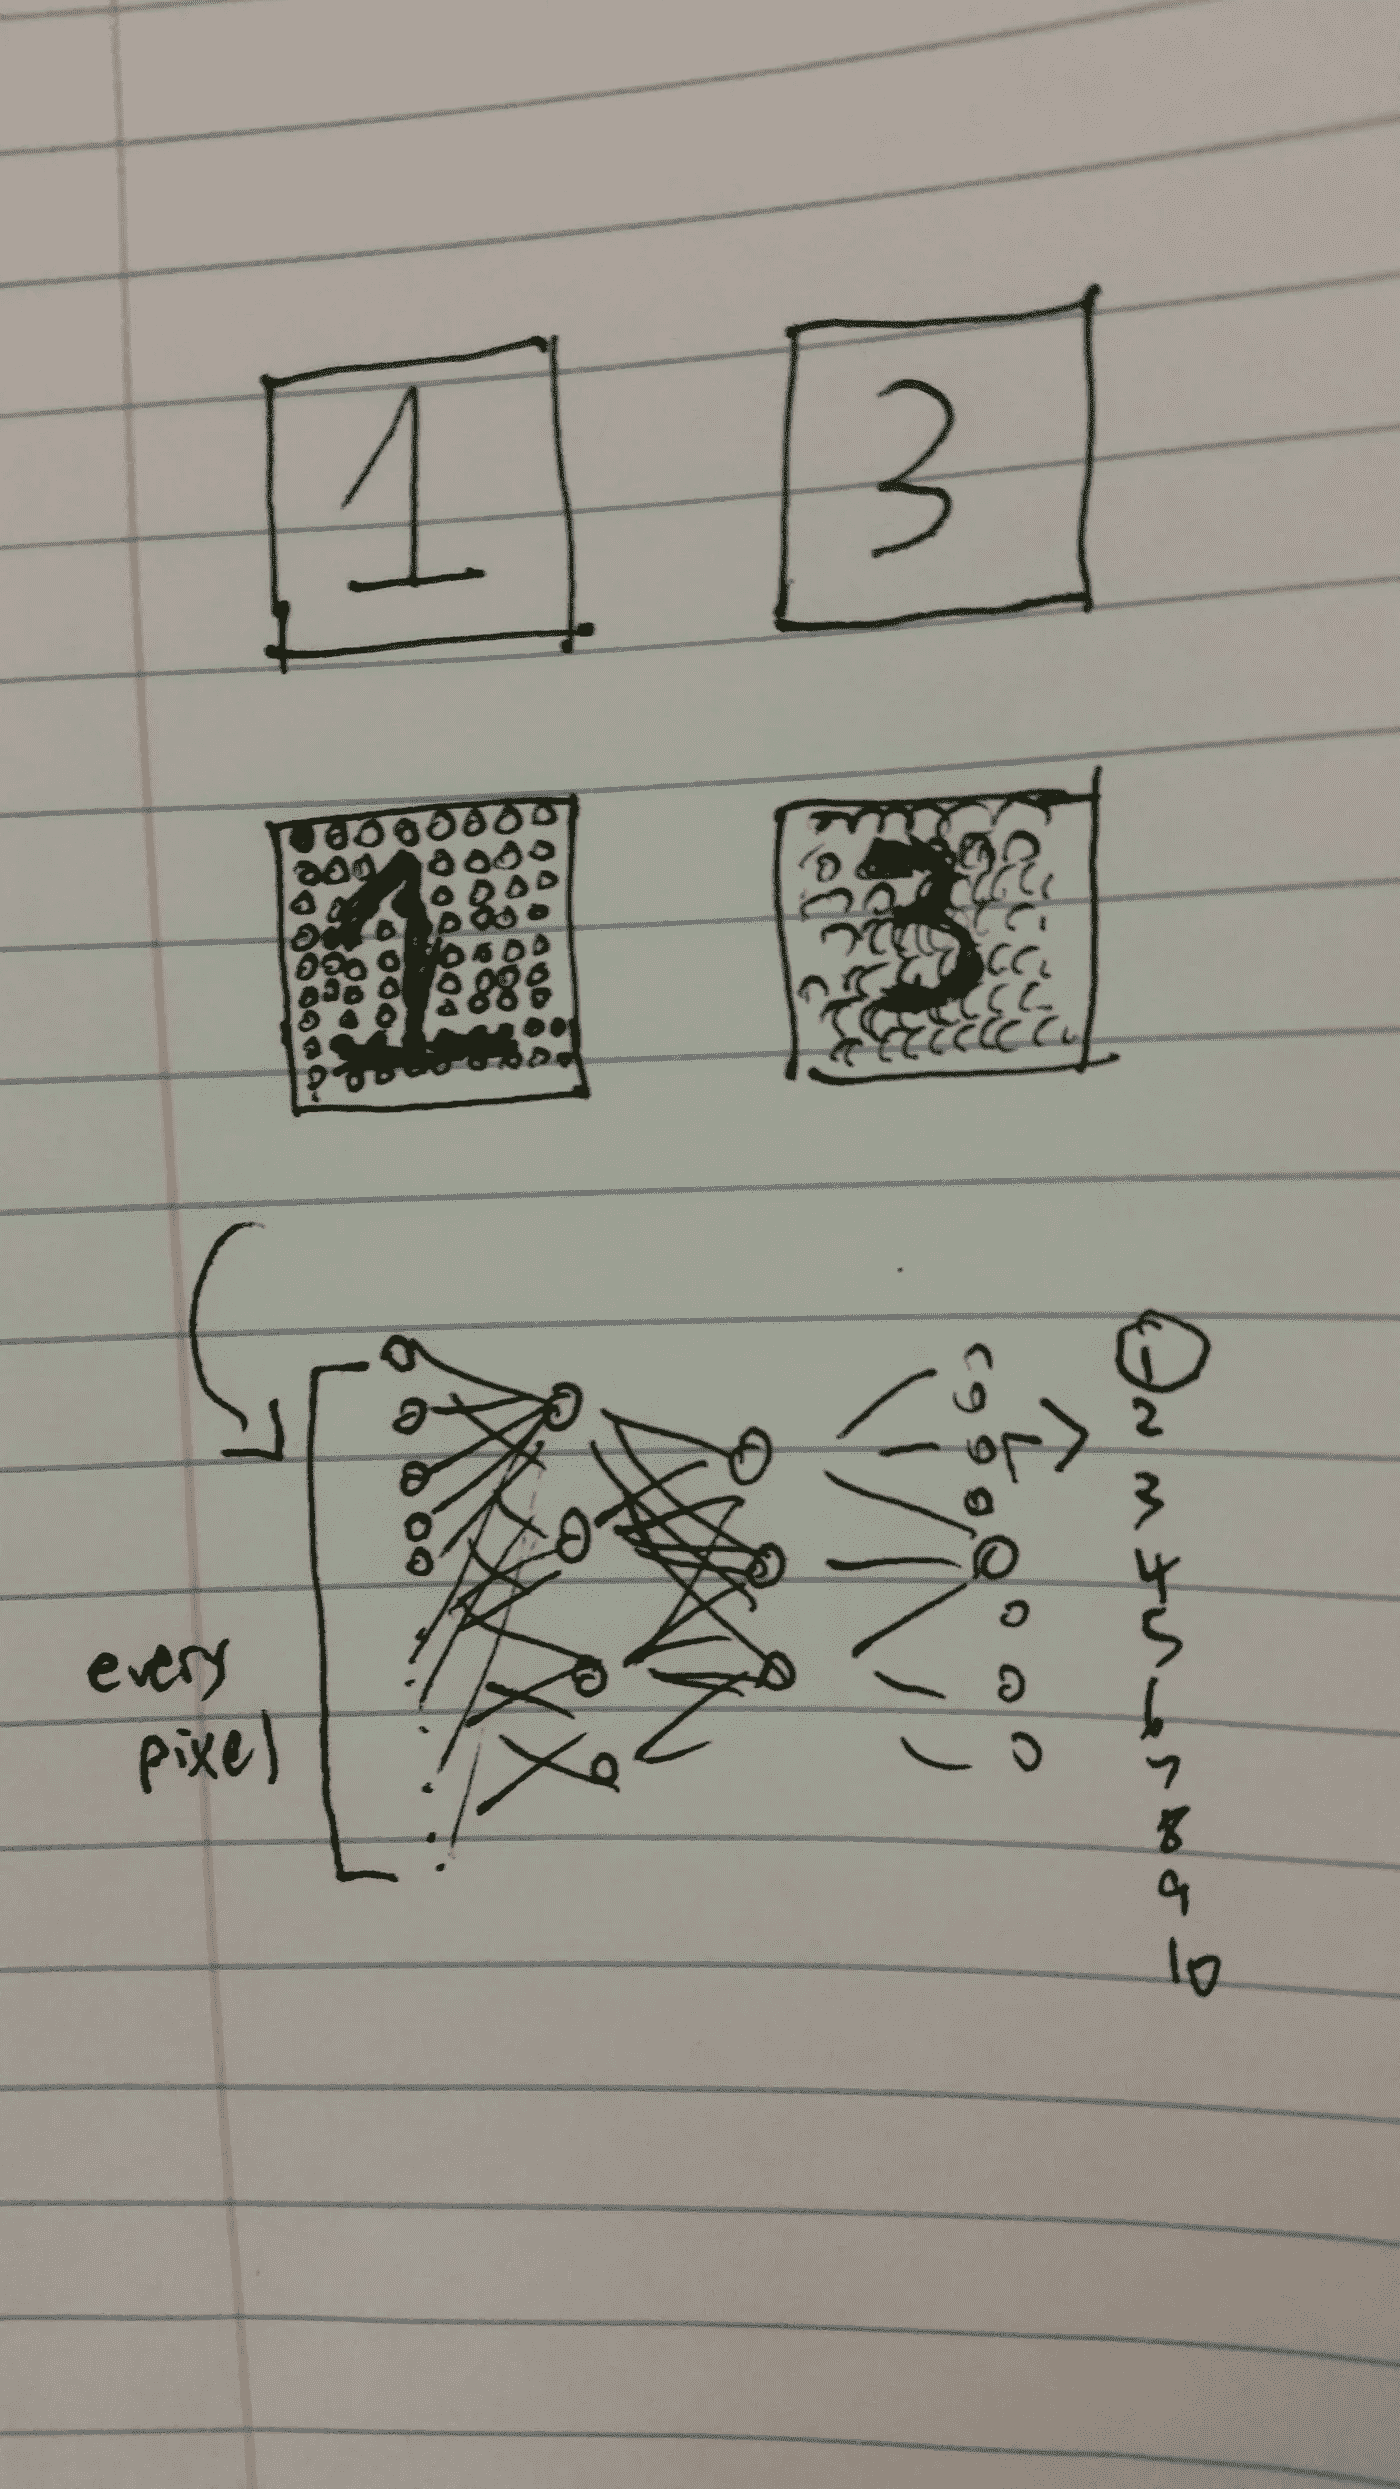 1 3
1 3
every
pixel
1
2
3
4
5
6
7
8
9
10